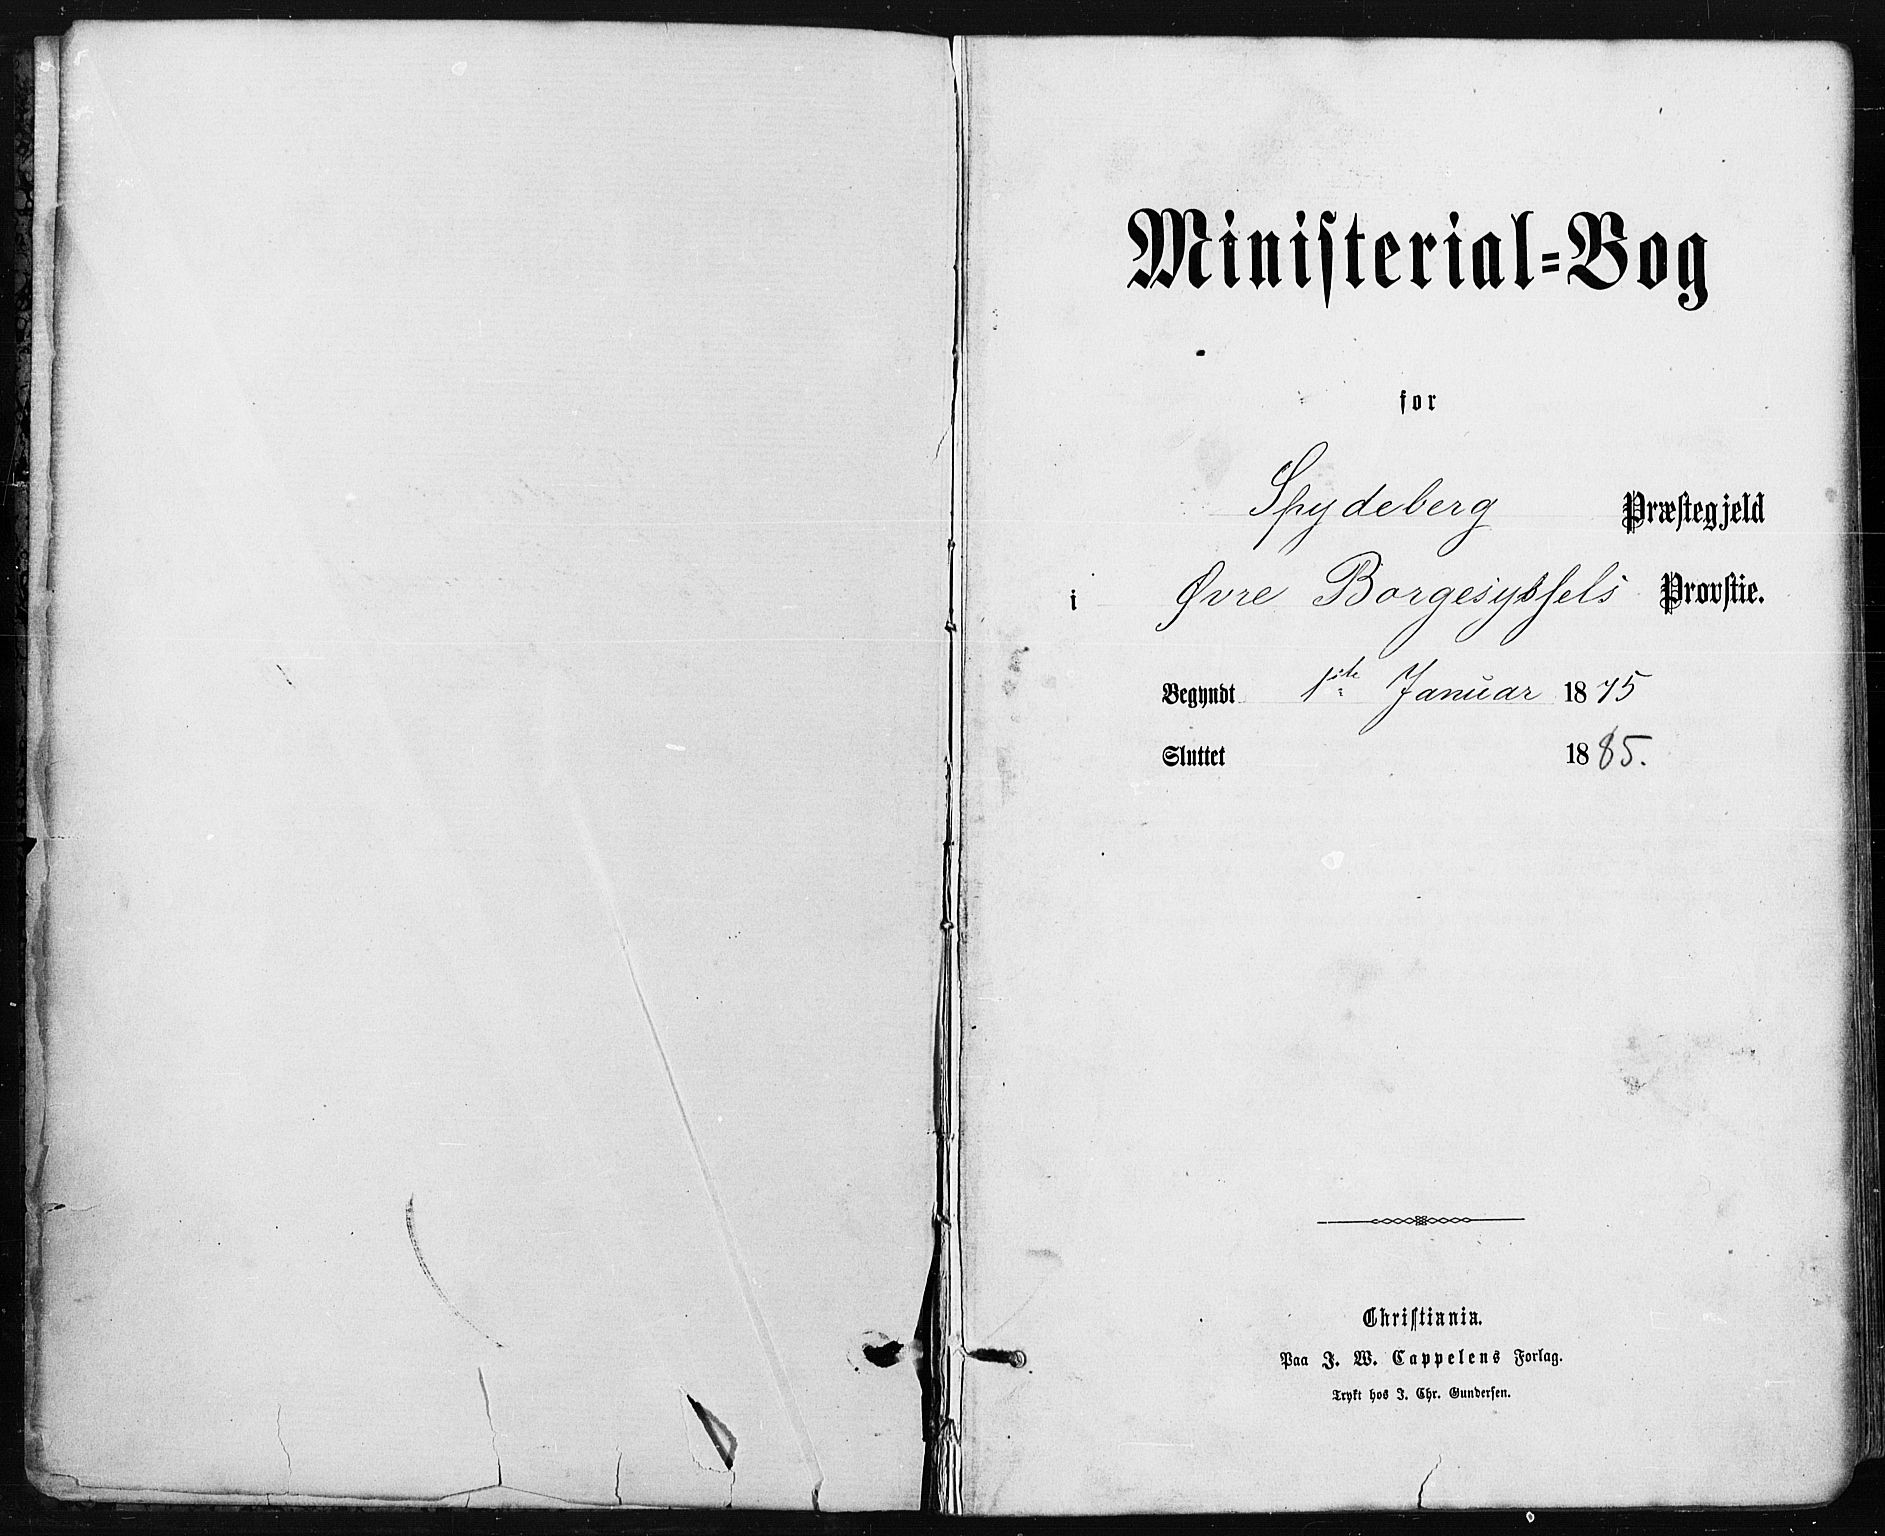 Ministerial-Bog
for
Spydeberg Præstegjeld
i Øvre Borgesyssels Provstie.
Begyndt 1ste Januar 1875
Sluttet 1885.
Christiania.
Paa J. W. Cappelens Forlag.
Trykt hos J. Chr. Gundersen.